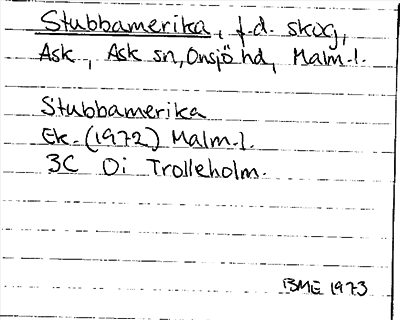 Stubbamerika, f.d. skog,
Ask, Ask sn, Onsjö hd, Malm-l.
Stubbamerika
Ek. (1972) Malm-l.
3C 0i Trolleholm.
BME 1973